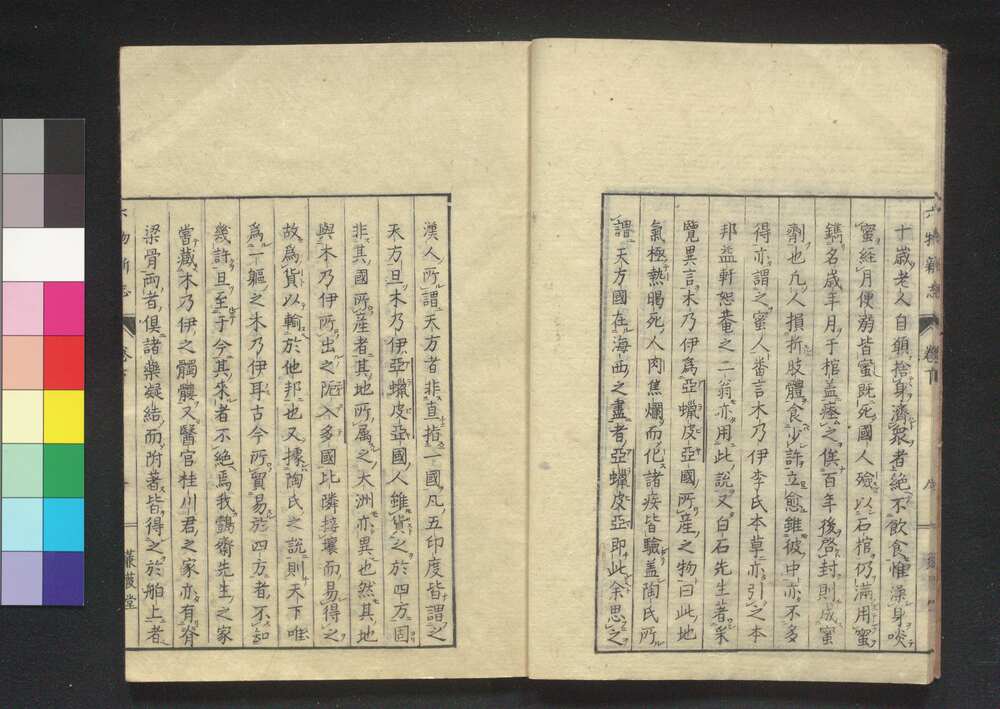 十歳老人自願捨身濟衆者絶不飲食惟澡身啖
蜜經月便溺皆蜜既死國人殮以石棺仍滿用蜜
鐫名歳年月于棺盖瘞之俟百年後啓封則成蜜
劑也凡人損折肢體食少許立愈雖彼中亦不多
得亦謂之蜜人番言木乃伊李氏本草亦引之本
邦益軒恕菴之二翁亦用此説又白石先生著采
覽異言木乃伊爲亞蠟皮亞國所産之物曰此地
氣極熱暍死人肉焦爛而化諸疾皆驗盖陶氏所
謂天方國在海西之盡者亞蠟皮亞即此余思之
漢人所謂天方者非直指一國凡五印度皆謂之
天方且木乃伊亞蠟皮亞國人雖貨之於四方固
非其國所産者其地所属之大洲亦異也然其地
與木乃伊所出之阨入多國比隣接壤而易得之
故爲貨以輸於他邦也又據陶氏之説則天下唯
爲一軀之木乃伊耳古今所貿易於四方者不知
幾許且至于今其來者不絶焉我鷧齋先生之家
嘗藏木乃伊之髑髏又醫官桂川君之家亦有脊
梁骨兩者倶諸藥凝結而附著皆得之於舶上者
六物新志
蒹葭堂